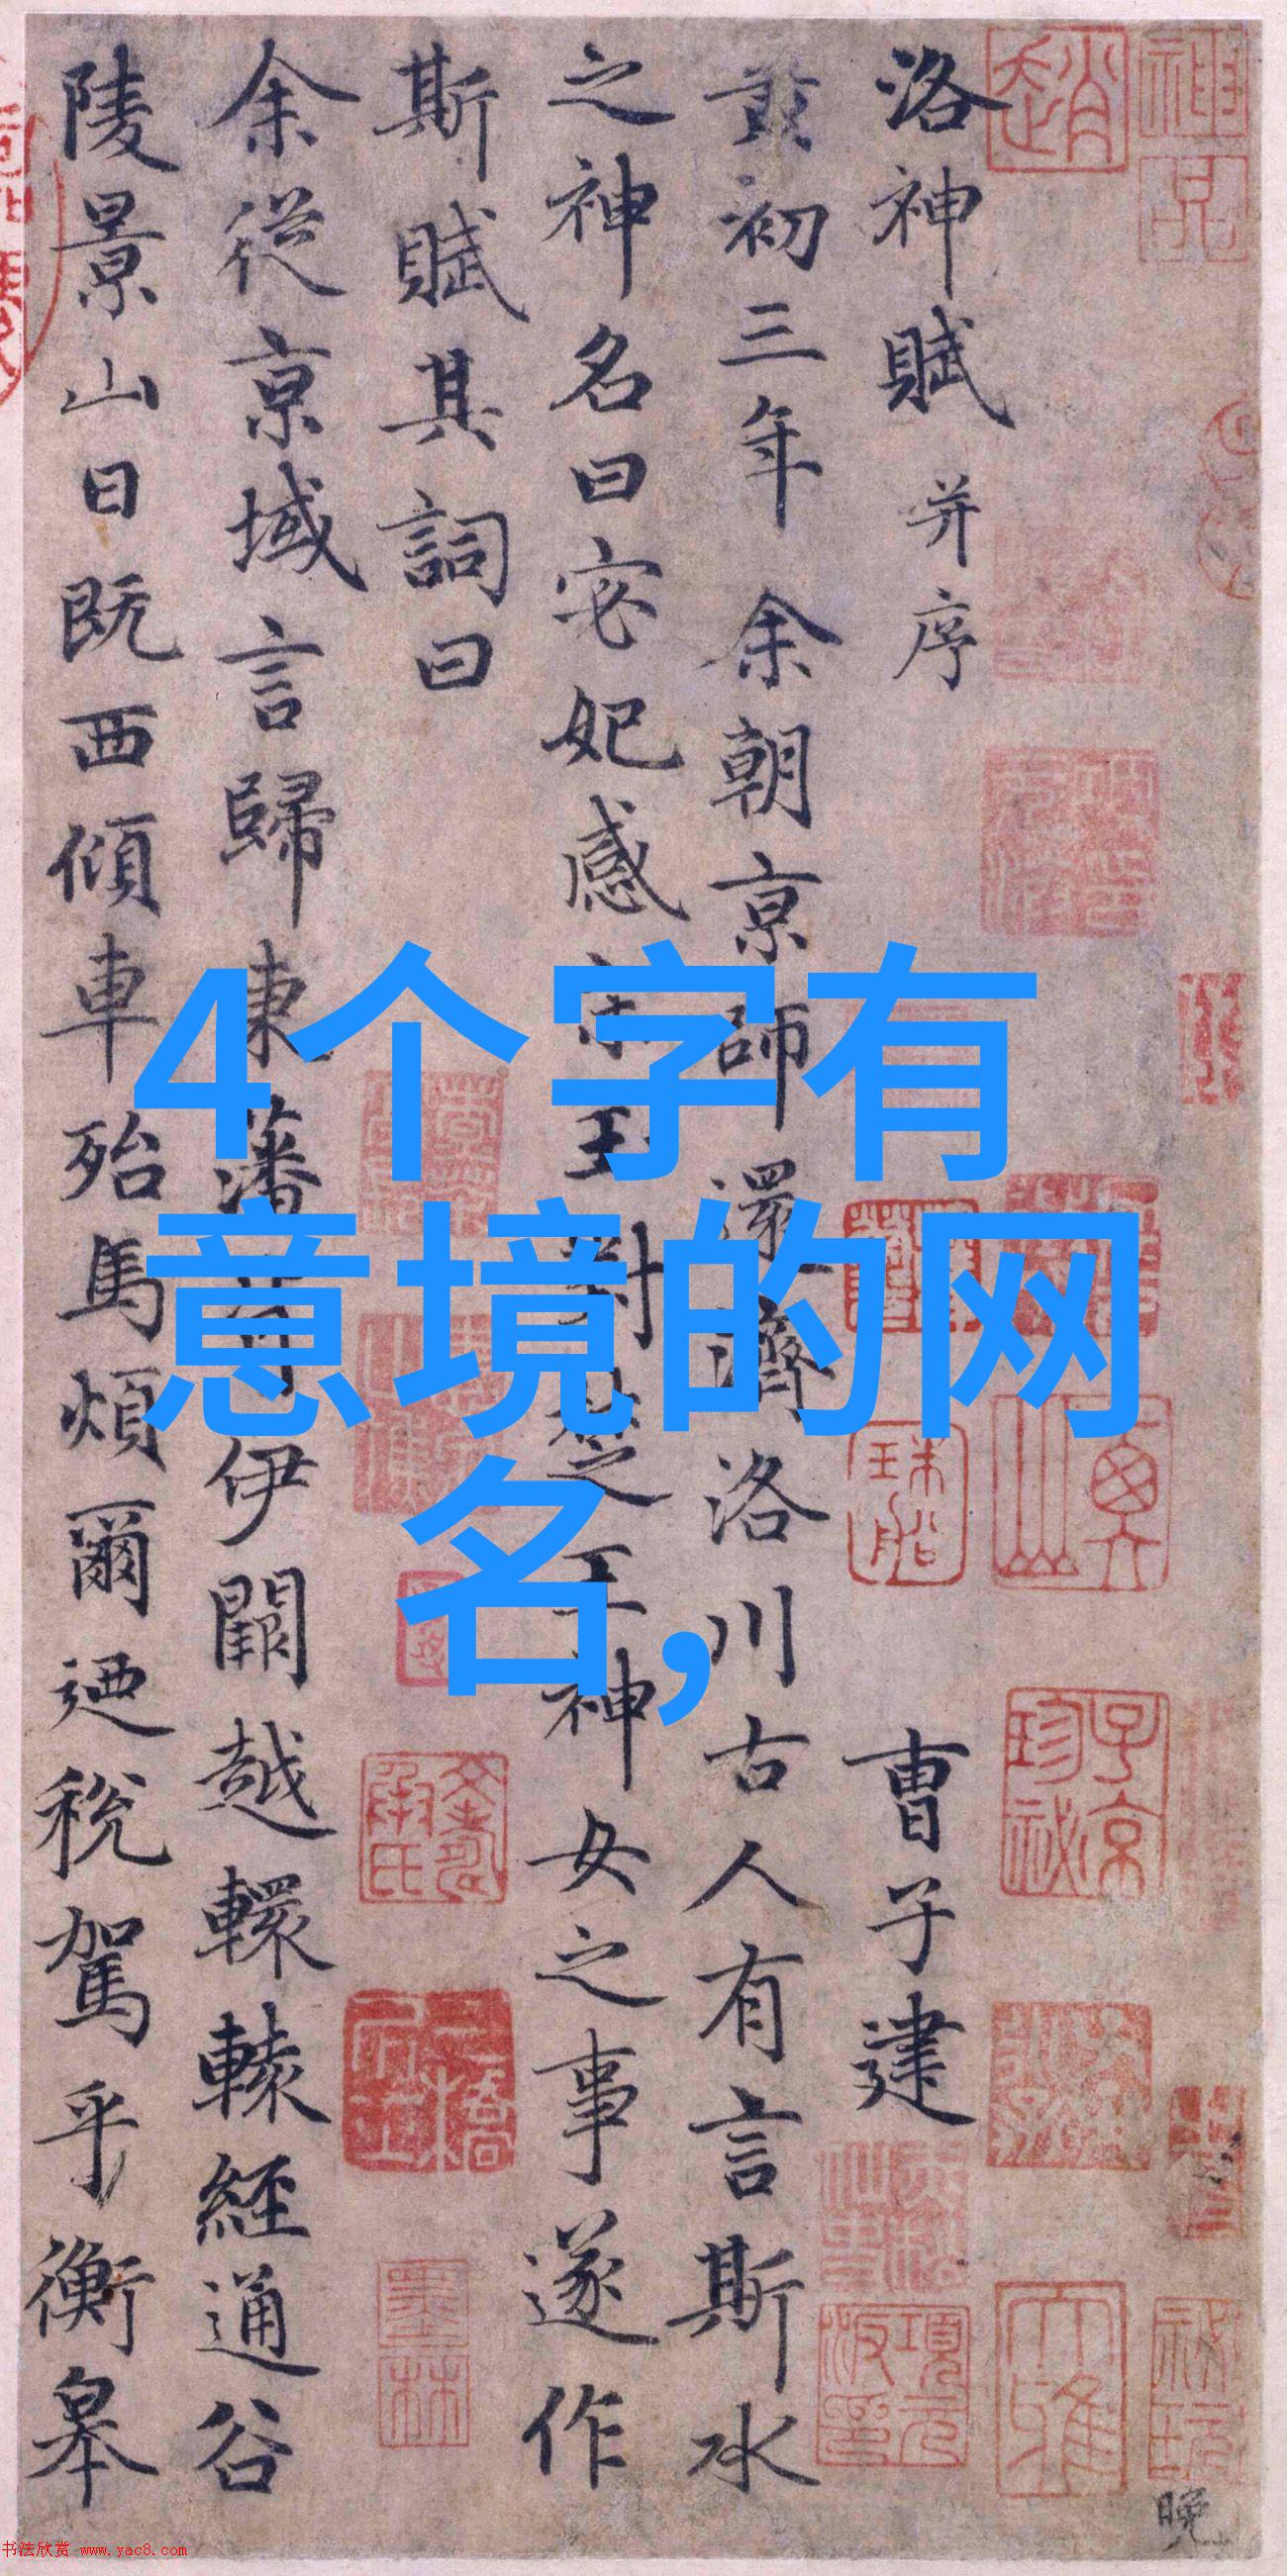 洛神賦 并序
曹子建
黃初三年余朝京師還濟洛川古人有言斯水
之神名曰宓妃感宋玉對楚王神女之事遂作
斯賦其詞曰
余從京域言歸東藩背伊闕越轘轅經通谷
陵景山日既西傾車殆馬煩爾迺稅駕乎衡皋
4个字有
意境的网
名,
子京
珍秘
墨林
晚
书法欣赏 www.yac8.com